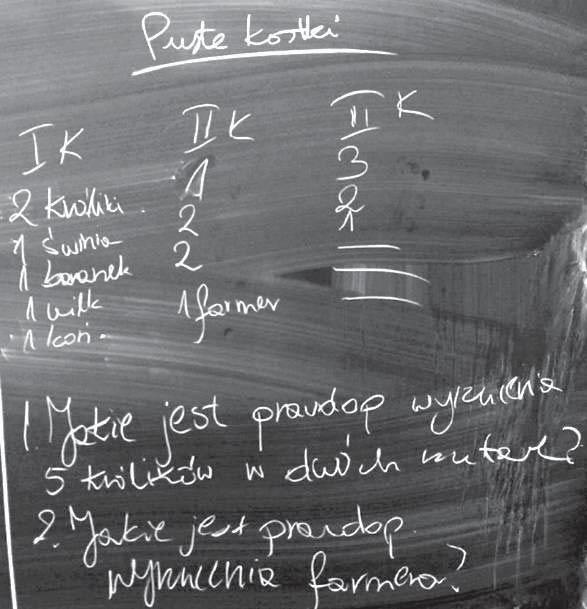 Puste kostki
I K
II K
III K
2 króliki
1
3
1 świnia
2
2
1 baranek
2
1
1 wilk
1 farmer
1 koń
1. Jakie jest prawdop wyrzucenia
5 królików w dwóch rzutach?
2. Jakie jest prawdop.
wyrzucenia farmera?